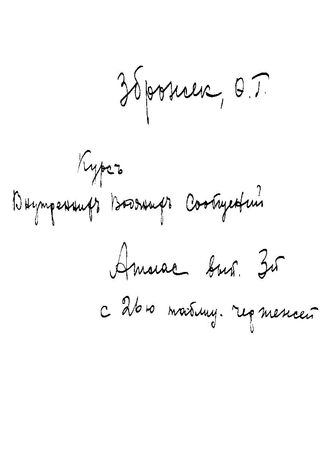 Зброжек, Ѳ.Г.
Курсъ
Внутреннихъ Водяныхъ Сообщений
Атлас вып. 3й
с 26ю таблиц. чертежей